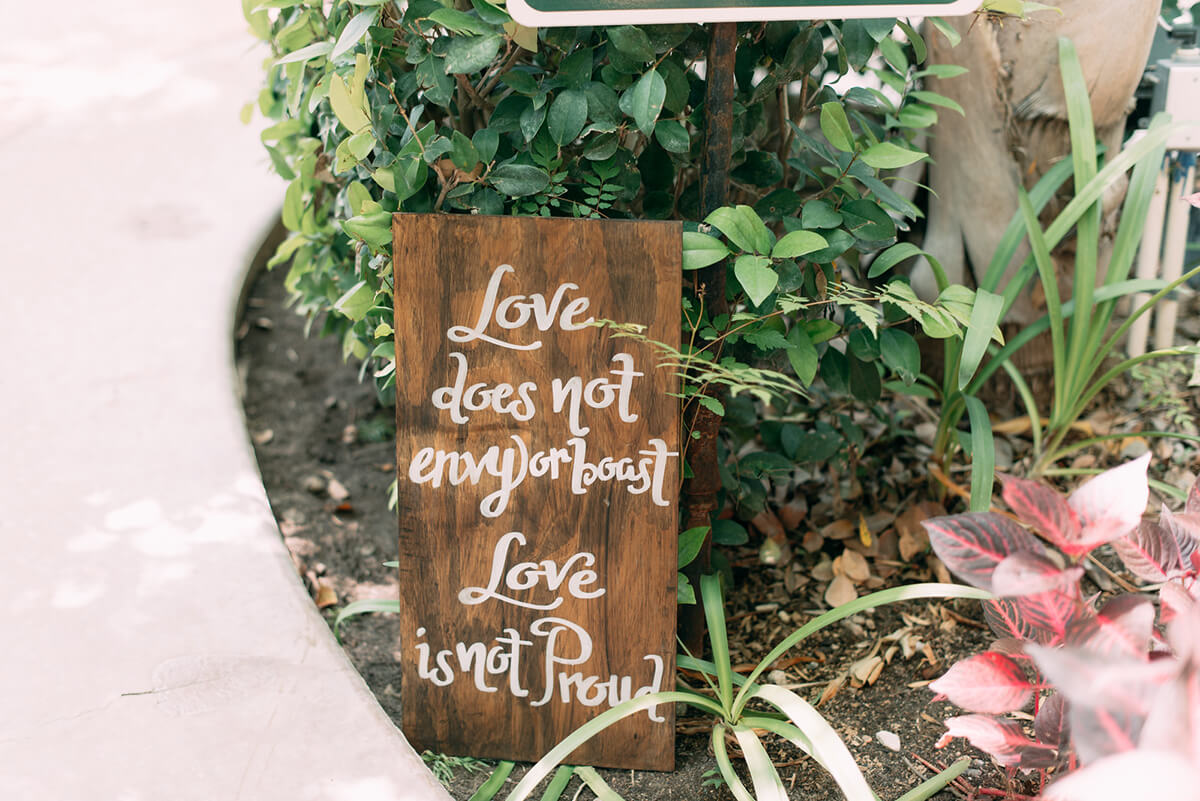 Love
does not
envy or boast
Love
is not Proud